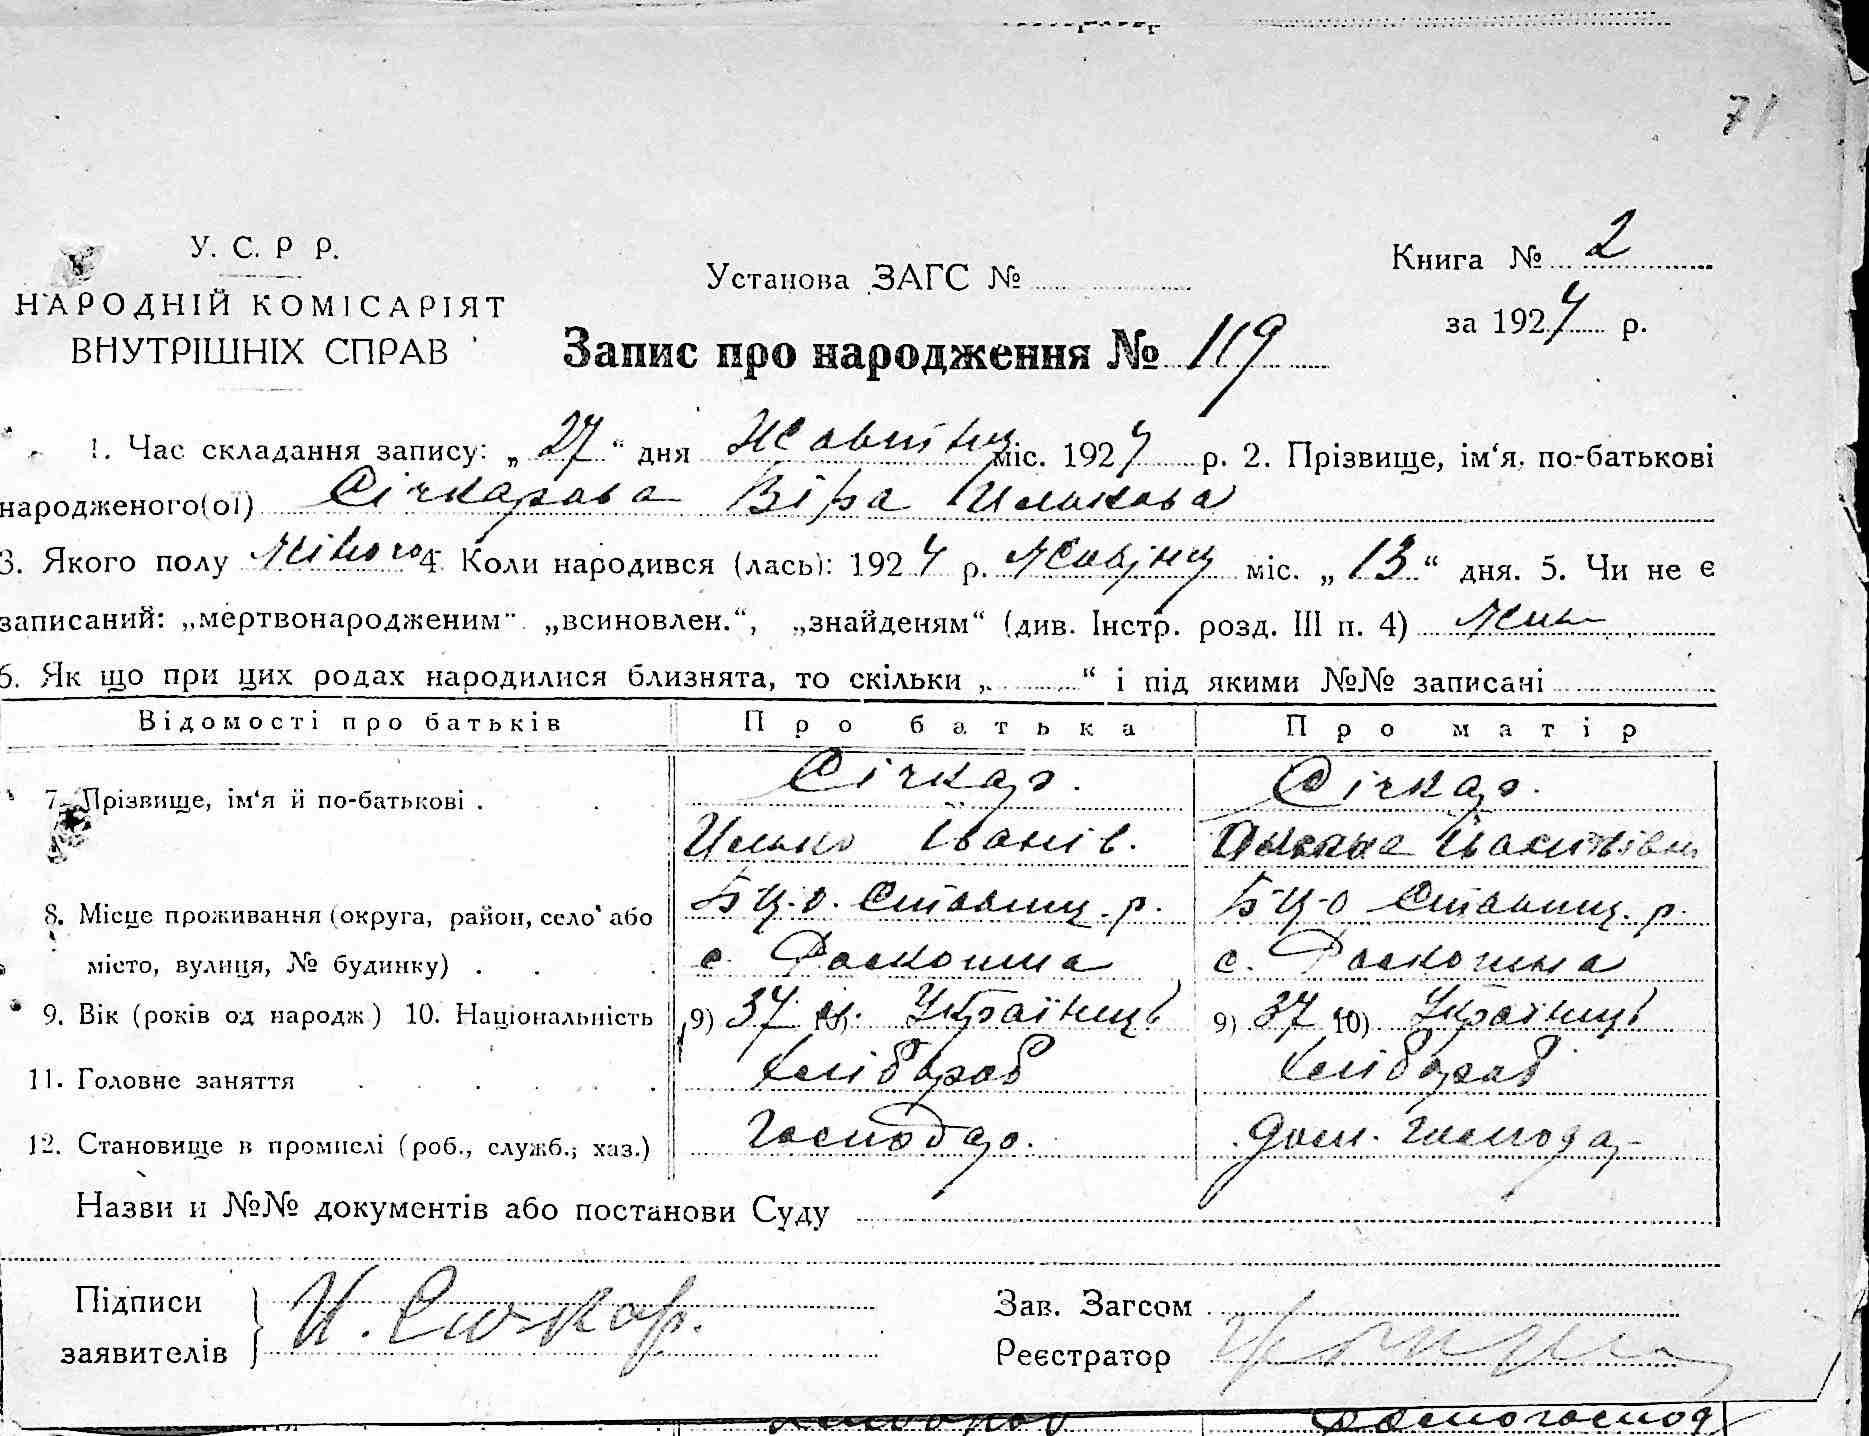 71
У. С. Р Р.
НАРОДНІЙ КОМІСАРІЯТ
ВНУТРІШНІХ СПРАВ
Установа ЗАГС №
Книга № 2
за 1924 р.
Запис про народження № 119
1. Час складання запису: „27“ дня Жовтня міс. 1924 р. 2. Прізвище, ім‘я, по-батькові
народженого(ої) Січкарова Віра Илькова
3. Якого полу жіного 4. Коли народився (лась): 1924 р. міс. „13“ дня. 5. Чи не є
записаний: „мертвонародженим“ „всиновлен.“, „знайденям“ (див. Інстр. розд. III п. 4)
6. Як що при цих родах народилися близнята, то скільки „ “ і під якими №№ записані
Відомості про батьків Про батька Про матір
7. Прізвище, ім‘я й по-батькові . Січкар. Січкар.
Илько Іванів.
8. Місце проживання (округа, район, село або Б-Ц.о. Ставищ. р. Б-Ц-о Ставищ. р.
місто, вулиця, № будинку) . с. Роскошна с. Роскошна
9. Вік (років од народж.) 10. Національність 9) 37 10) Українець 9) 37 10) Українець
11. Головне заняття Хлібороб Хлібороб
12. Становище в промислі (роб., служб.; хаз.) Господар. Дом. господар
Назви и №№ документів або постанови Суду
Підписи
заявителів И. Сичкар.
Зав. Загсом
Реєстратор